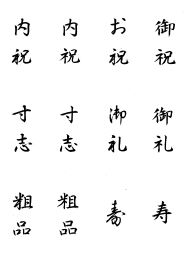 御祝
お祝
内祝
内祝
御礼
御礼
寸志
寸志
寿
壽
粗品
粗品